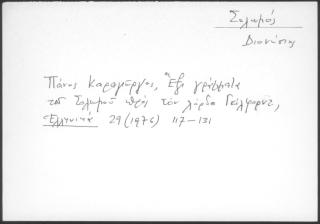 Σολωμός
Διονύσιος
Πάνος Καραγιώργος, Ἕξι γράμματα
τοῦ Σολωμοῦ πρὸς τὸν λόρδο Γκίλφορντ,
Ἑλληνικά 29 (1976) 117–131